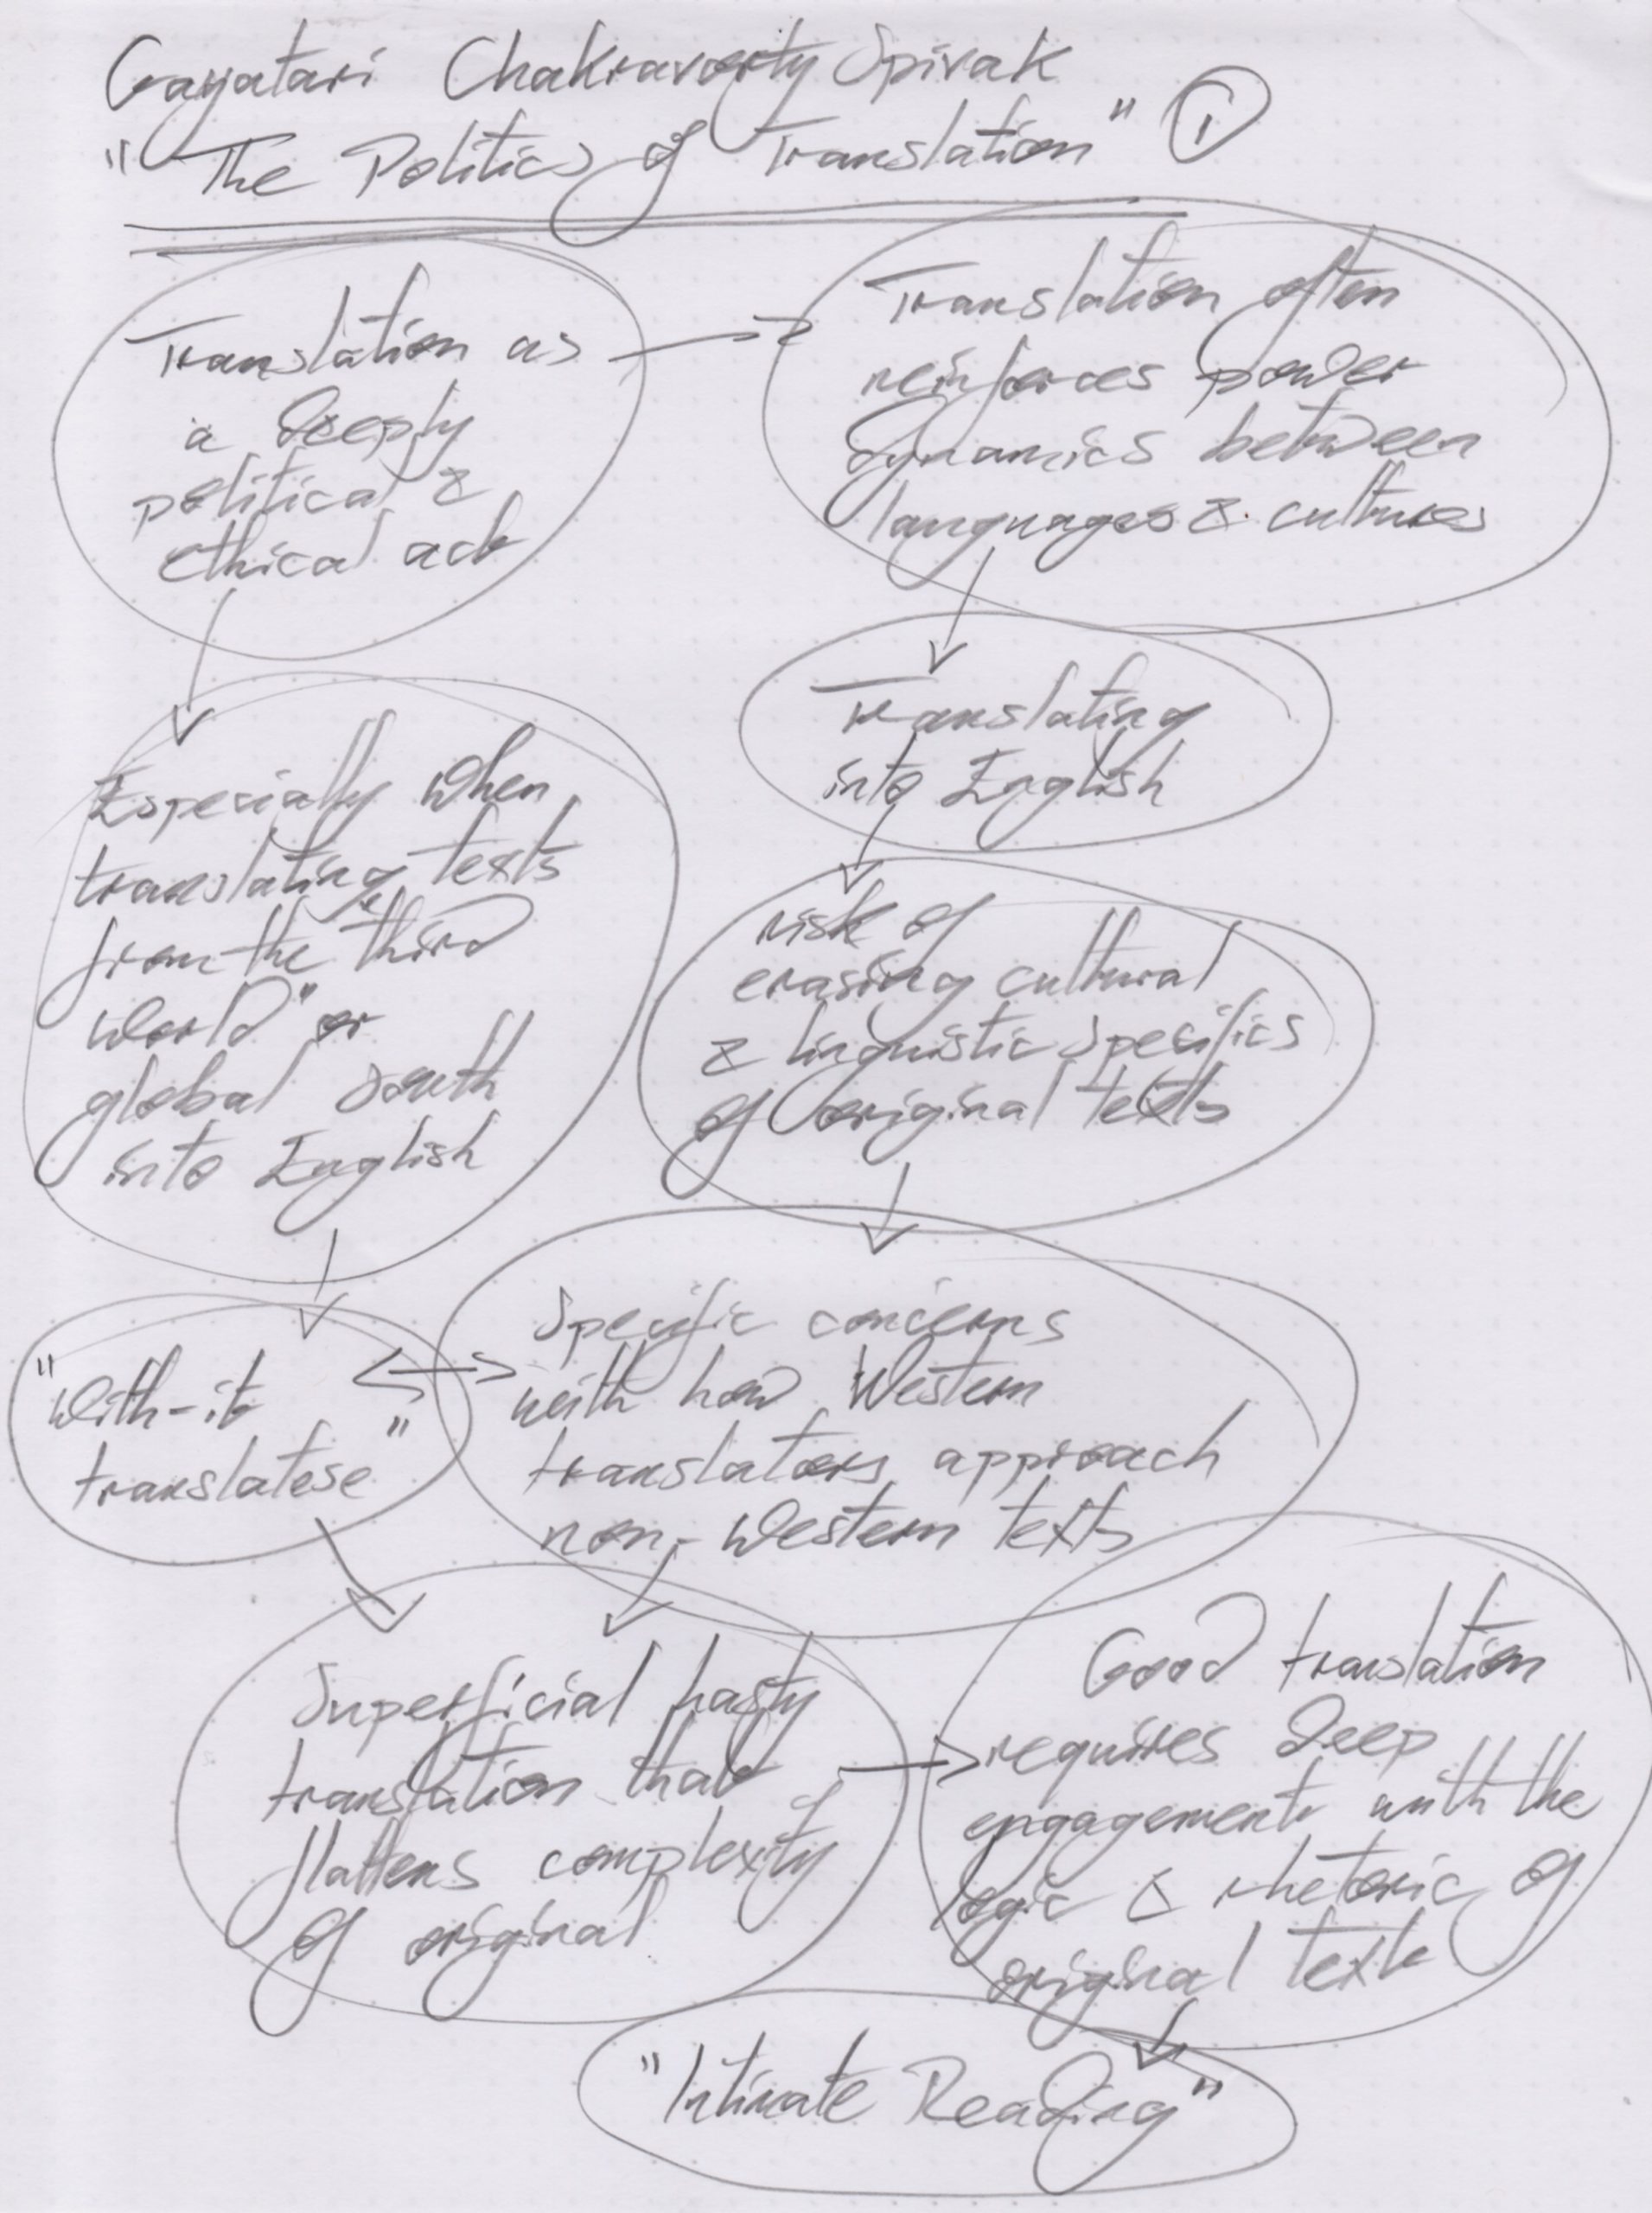 Gayatari Chakravorty Spivak
"The Politics of Translation" 1
Translation as
a deeply
political &
ethical act
Translation often
reinforces power
dynamics between
languages & cultures
Especially when
translating texts
from the "third
world" or
global south
into English
Translating
into English
risk of
erasing cultural
& linguistic specifics
of original texts
"with-it
translatese"
Specific concerns
with how Western
translators approach
non-Western texts
Superficial hasty
translation that
flattens complexity
of original
Good translation
requires deep
engagement with the
logic & rhetoric of
original text
"Intimate Reading"